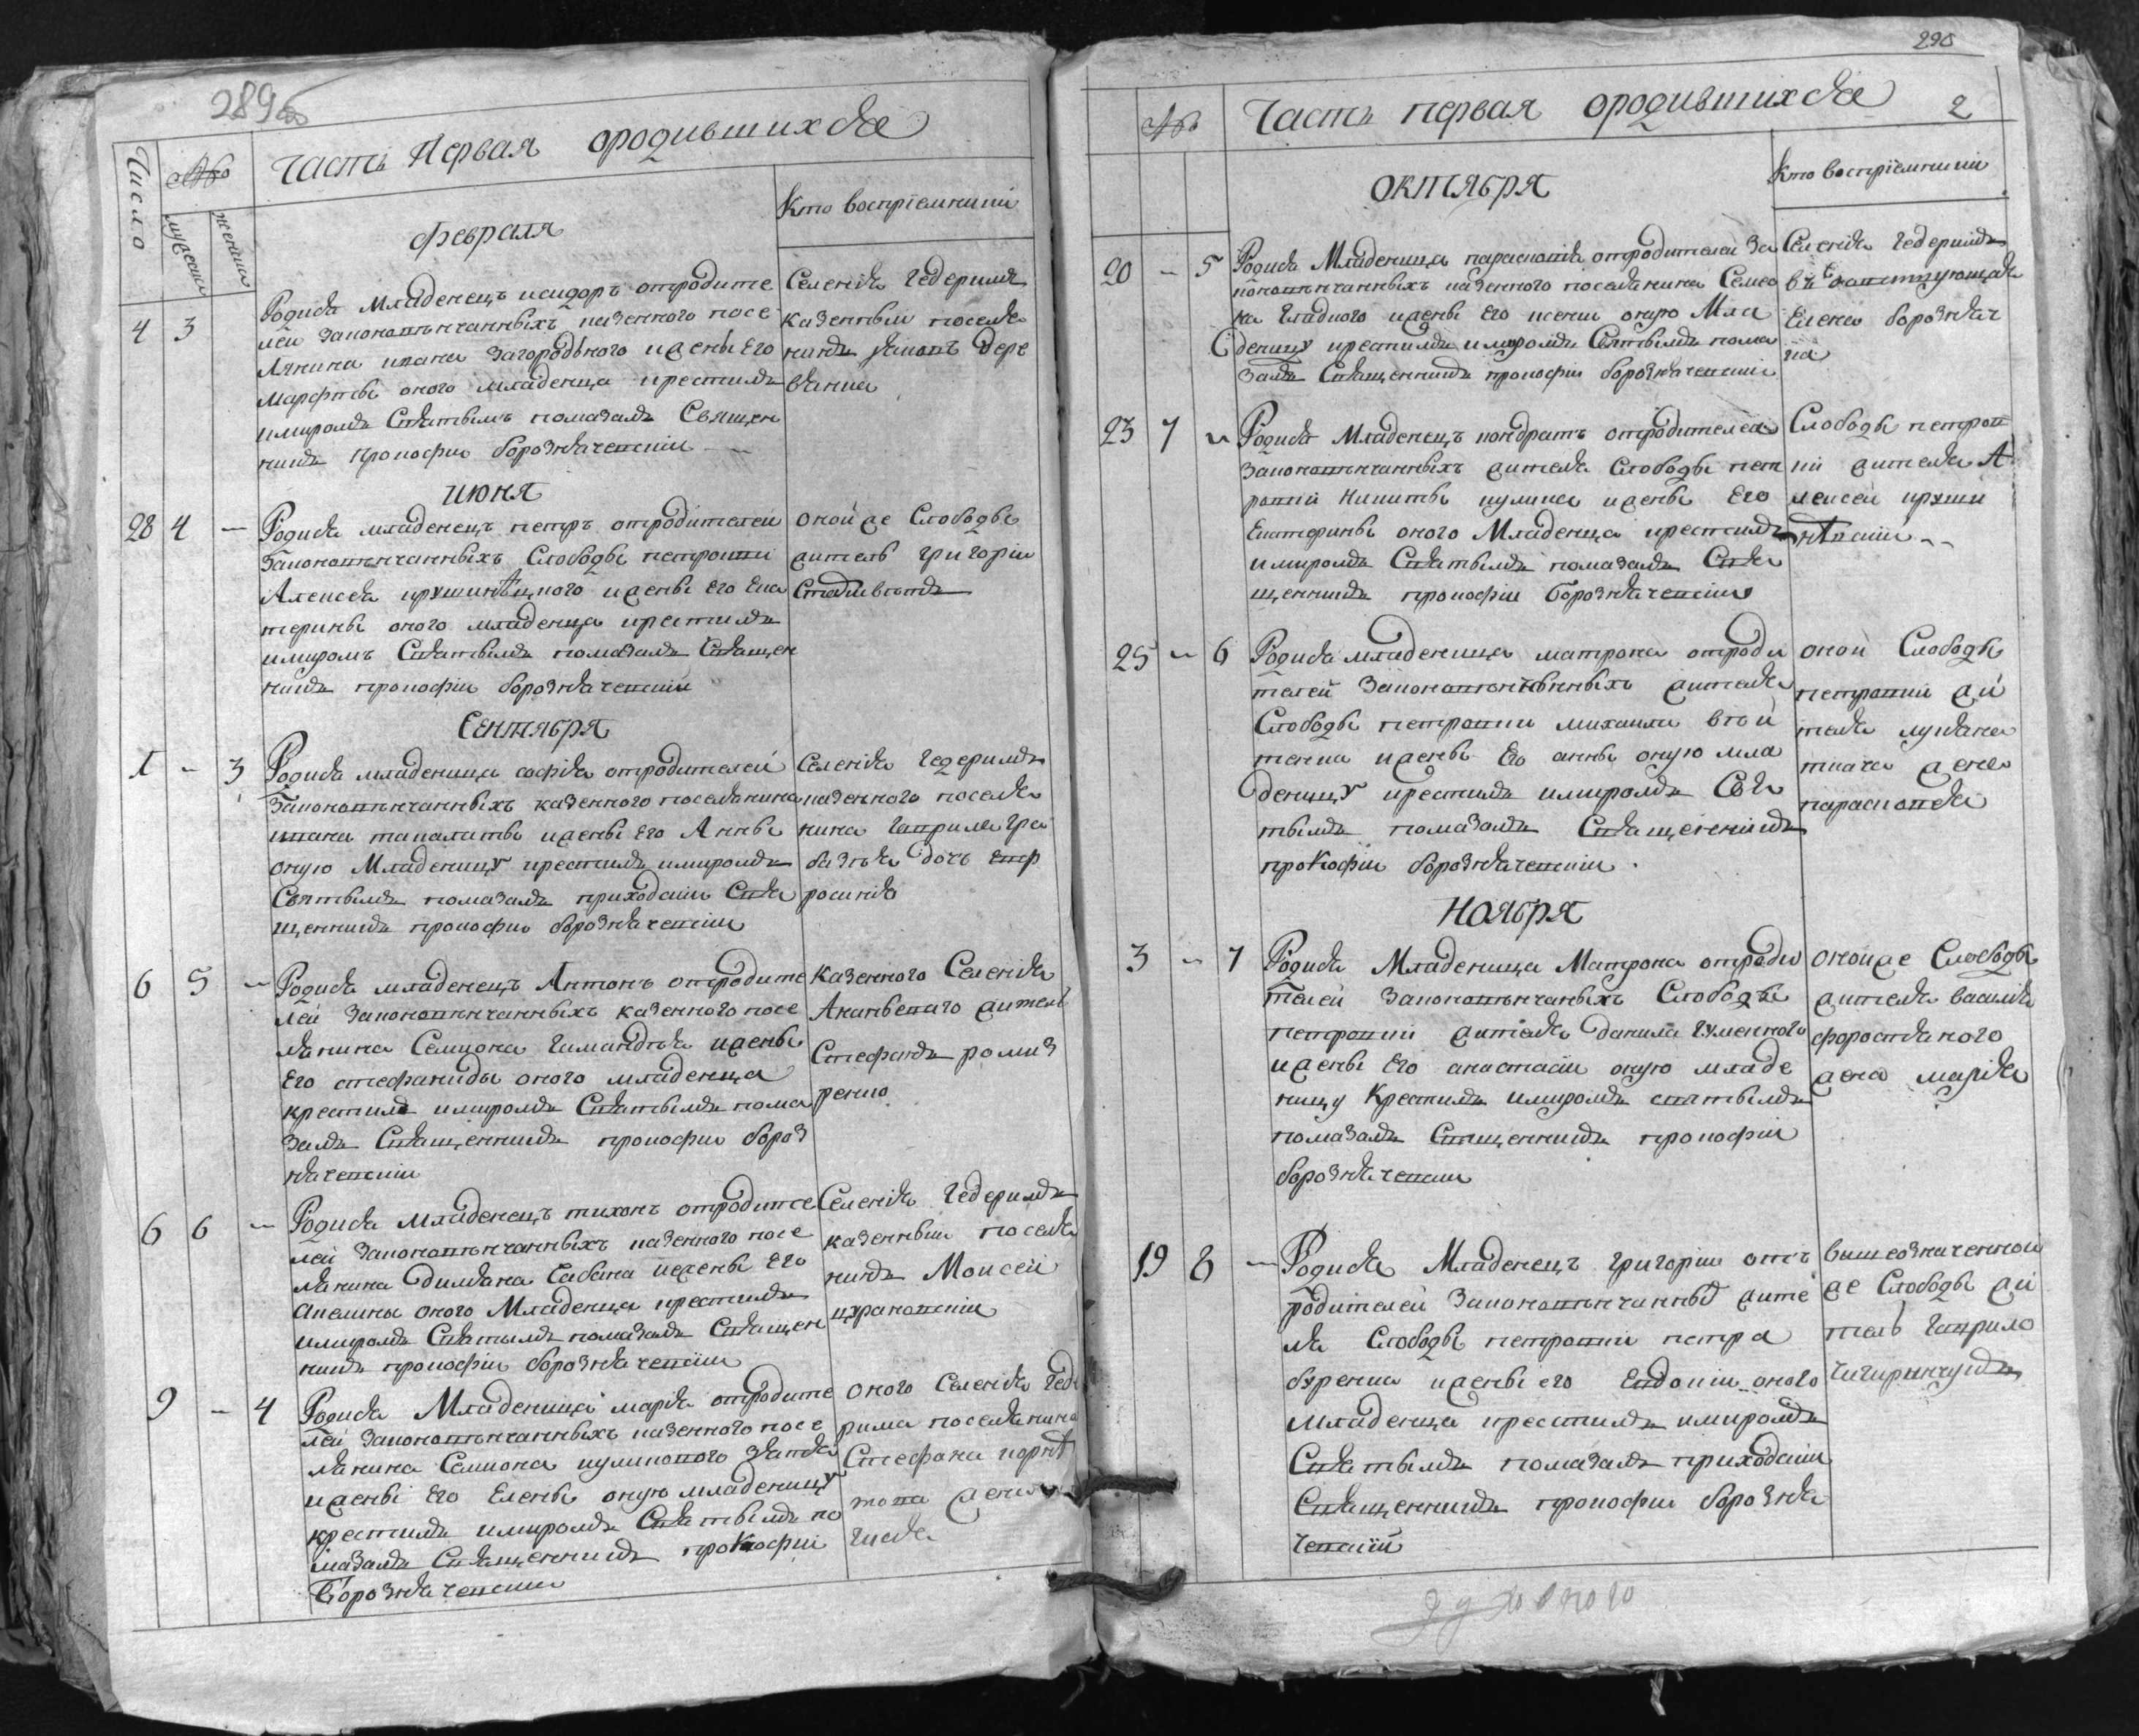 289об
Часть Первая ородившихся
Число
№
мужеска
женска
Кто восприемники
февраля
4 3
Родися младенецъ исидоръ отродите
лей законовѣнчанныхъ казенного посе
лянина ивана Загородного ижены Его
марфты оного младенца крестилъ
имиромъ Святымъ помазалъ Священ
никъ Прокофии борознячевскии
Селения Гедеримъ
казенныи поселя
нинъ
июня
28 4 —
Родися младенецъ петръ отродителей
Законовѣнчанныхъ Слободы петровки
Алексея ижены Его Ека
терины оного младенца крестилъ
имиромъ Святымъ помазалъ Священ
никъ прокофии борознячевскии
оной же Слободы
житель григории
Сентября
1 — 3
Родися младеница софия отродителей
Законовѣнчанныхъ казенного поселянина
ивана ижены Его Анны
оную Младеницу крестилъ имиромъ
Святымъ помазалъ приходскии Свя
щенникъ прокофии борознячевскии
Селения Гедеримъ
казенного поселя
нина Гаврила гра
дочь Евф
росиния
6 5 —
Родися младенецъ Антонъ отродите
лей Законовѣнчанныхъ казенного посе
лянина Семиона ижены
Его стефаниды оного младенца
крестилъ имиромъ Святымъ пома
залъ Священникъ прокофии бороз
нячевскии
Казенного Селения
Ананьевского житель
Стефанъ
6 6 —
Родися Младенецъ тихонъ отродите
лей Законовѣнчанныхъ казенного посе
лянина ижены Его
акелины оного Младенца крестилъ
имиромъ Святымъ помазалъ Священ
никъ прокофии борознячевскии
Селения Гедеримъ
казенныи поселя
нинъ Моисеи
9 — 4
Родися Младеница мария отродите
лей законовѣнчанныхъ казенного посе
лянина Самиона
ижены Его Елены оную младеницу
крестилъ имиромъ Святымъ по
мазалъ Священникъ проКофии
Борознячевскии
оного Селения Геде
рима поселянина
Стефана
жена
290
№
Часть первая ородившихся 2
Кто восприемники
октября
20 — 5
Родися Младеница парасковия отродителей За
коновѣнчанныхъ казенного поселянина Семео
на Гладкого ижены Его оную Мла
деницу крестилъ имиромъ Святымъ пома
залъ Священникъ прокофии борознячевскии
Селения Гедеримъ
Елена борознач
23 7 —
Родися Младенецъ кондратъ отродителей
Законовѣнчанныхъ жителя Слободы пет
ровки Никиты кулика ижены Его
Екатерины оного Младенца крестилъ
имиромъ Святымъ помазалъ Свя
щенникъ прокофии Борознячевскии
Слободы петров
ки жителя А
лексей
25 — 6
Родися младеница матрона отроди
телей Законовѣнчанныхъ жителя
Слободы петровки михаила
ижены Его анны оную мла
деницу крестилъ имиромъ Свя
тымъ помазалъ Священникъ
проКофии борознячевскии
оной Слободы
петровки жи
теля лукяна
ткача жена
парасковия
Ноября
3 — 7
Родися Младеница Матрона отроди
телей Законовѣнчаныхъ Слободы
петровки жителя данила Гуменного
ижены Его анастасии оную младе
ницу Крестилъ имиромъ святымъ
помазалъ Священникъ прокофии
борознячевскии
оной же Слободы
жителя василия
форостяного
жена мария
19 8 —
Родися Младенецъ григории отъ
родителей Законовѣнчанныхъ жите
ля Слободы петровки петра
ижены его Евдокии оного
младенца крестилъ имиромъ
Святымъ помазалъ приходскии
Священникъ прокофии бороз­ня
чевскии
вышеозначенной
же Слободы жи
тель Гаврило
духовного